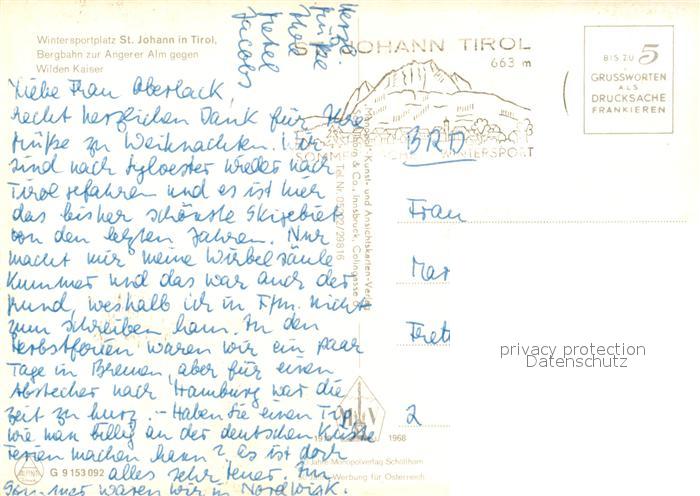 Wintersportplatz St. Johann in Tirol,
Bergbahn zur Angerer Alm gegen
Wilden Kaiser
Liebe Frau Oberlack,
recht herzlichen Dank für Ihre
Grüße zu Weihnachten. Wir
sind nach Sylvester wieder nach
Tirol gefahren und es ist hier
das bisher schönste Skigebiet
von den letzten Jahren. Nur
macht mir meine Wirbelsäule
Kummer und das war auch der
Grund, weshalb ich in Ffm. nicht
zum Schreiben kam. In den
Herbstferien waren wir ein paar
Tage in Bremen aber für einen
Abstecher nach Hamburg war die
Zeit zu kurz. - Haben Sie einen Tip
wie man billig an der deutschen Küste
Ferien machen kann? Es ist doch
alles sehr teuer. Im
Sommer waren wir in Nordwijk.
Herzl.
Grüße
Ihre
Jacobs
ST. JOHANN TIROL
663 m
SOMMER WINTERSPORT
BIS ZU 5
GRUSSWORTEN
ALS
DRUCKSACHE
FRANKIEREN
BRD
Frau
Mar
Fret
2
Kunst- und Ansichtskarten-Verlag
& Co., Innsbruck, Colingasse
Tel. Nr. 05222/29816
1968
Jahre Monopolverlag Schöllhorn
Jahre Werbung für Österreich
G 9153092
privacy protection
Datenschutz